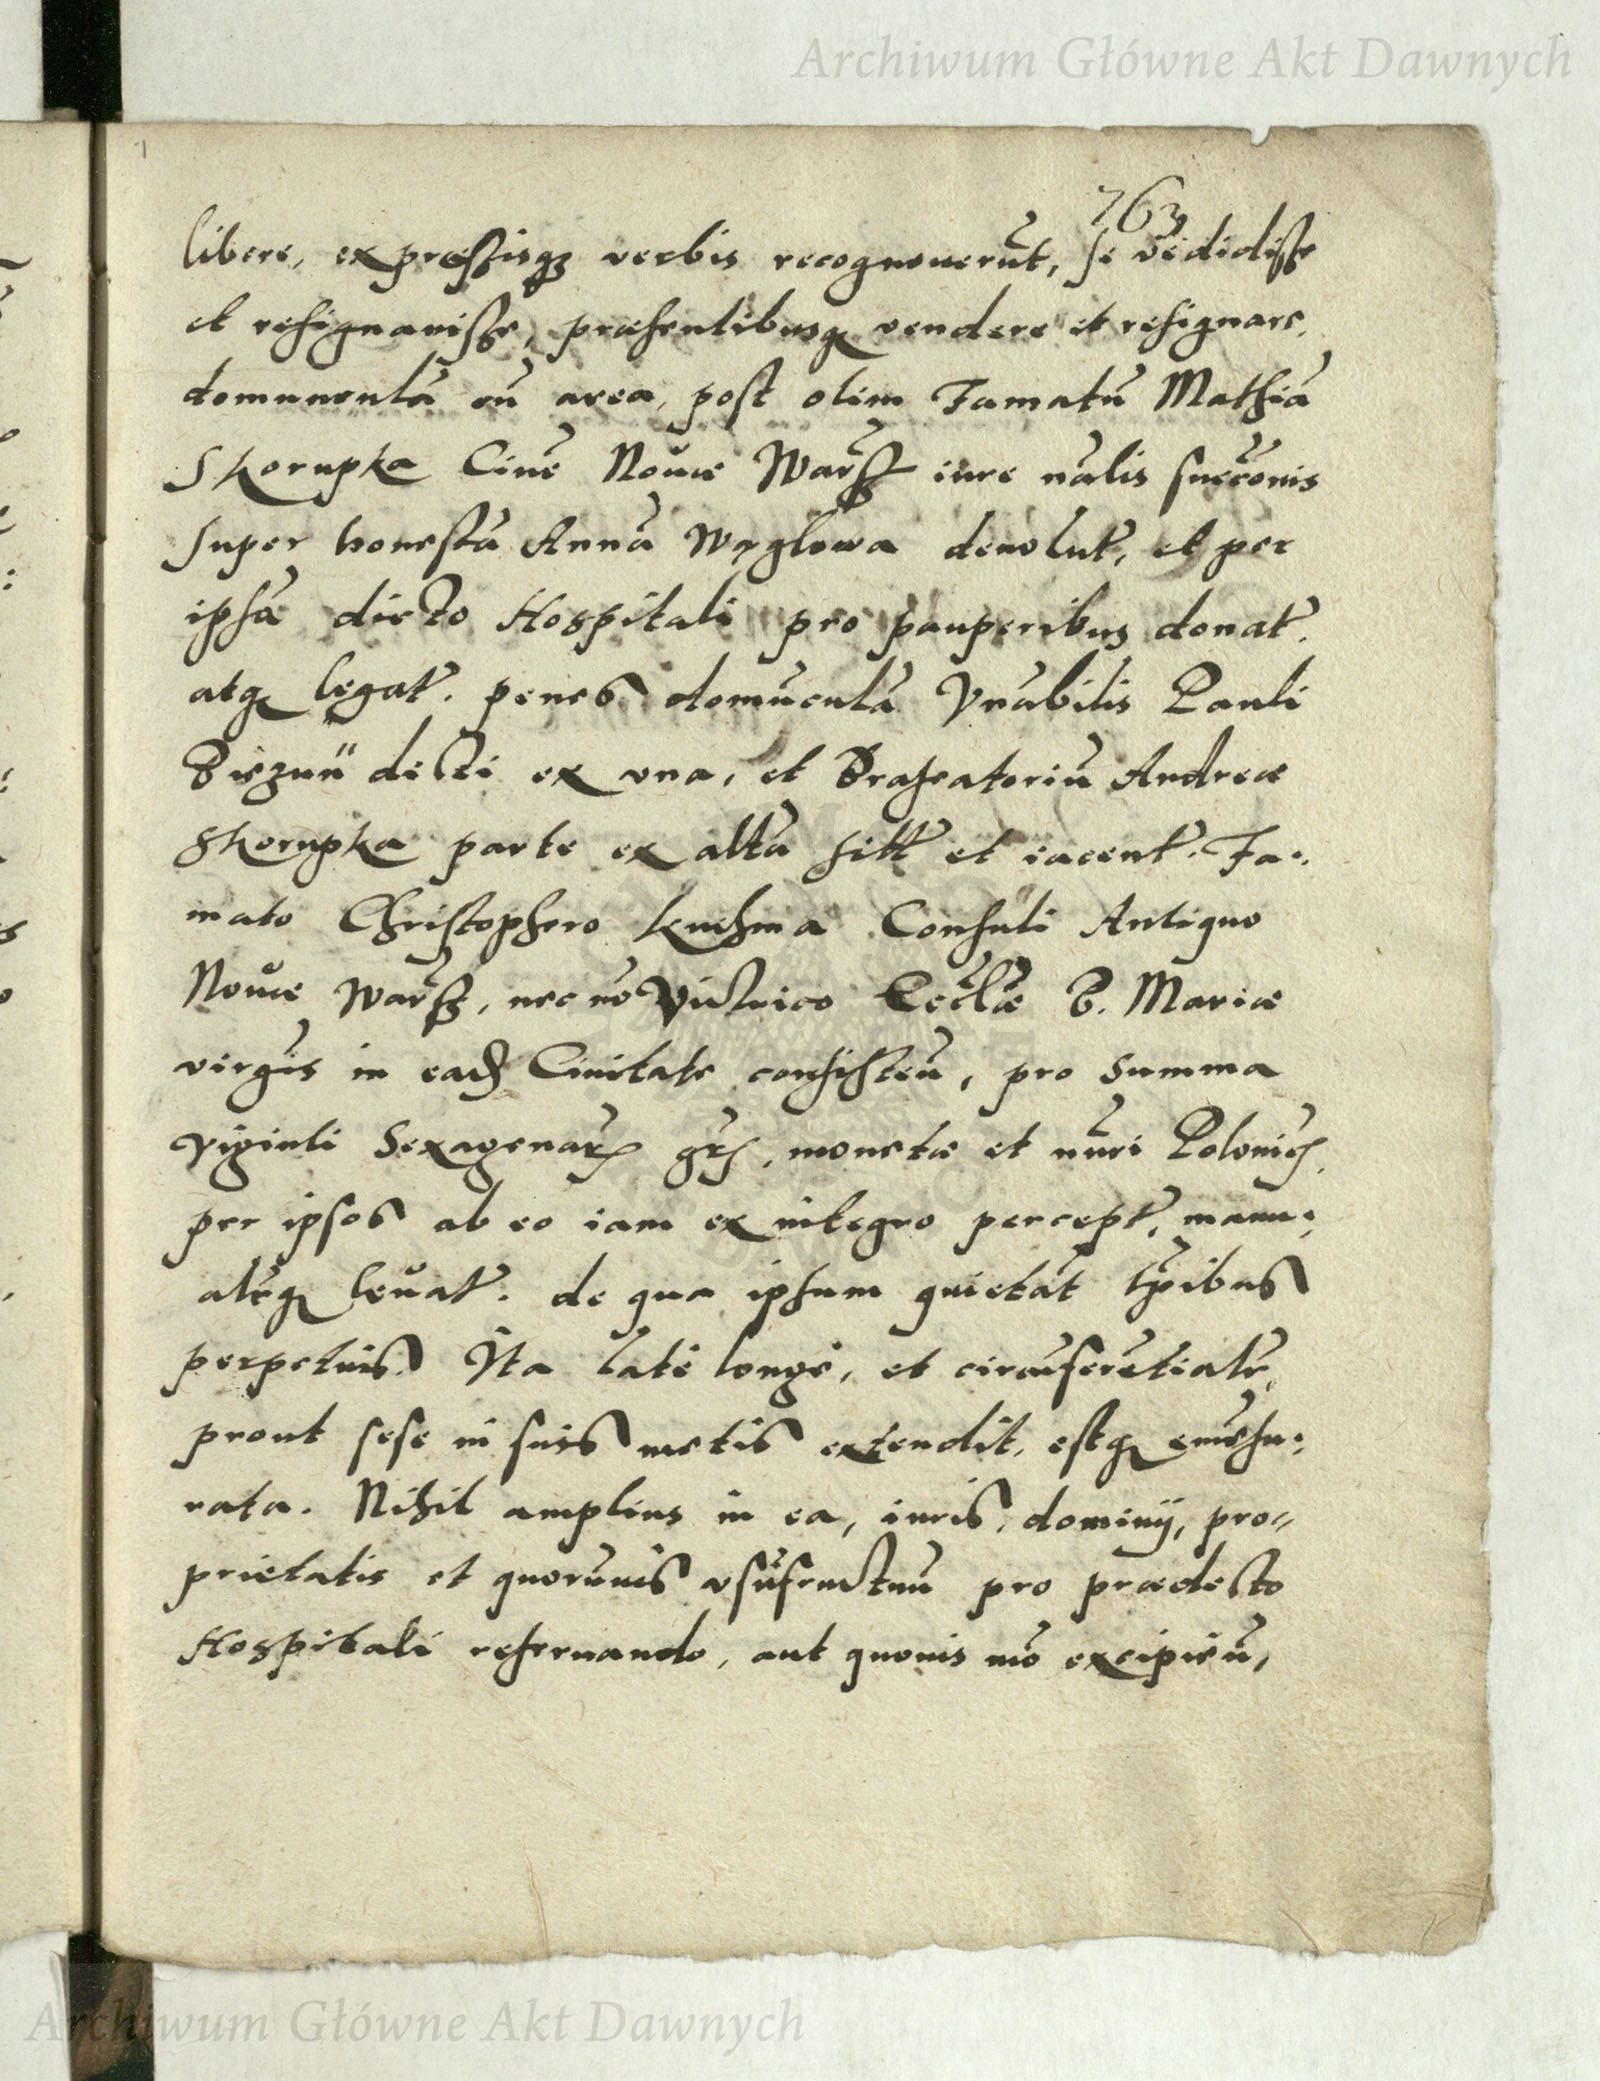 Archiwum Główne Akt Dawnych
763
libere, expressisq₃ verbis recognouerūt, se vēdidisse
et resignauisse, præsentibusq₃ vendere et resignare,
domunculā cū area, post olim Famatū Mathiā
Skorupka Ciuē Nouæ Warss iure nālis succ̄onis
super honestā Annā Węglowa deuolut̄, et per
ipsā dicto Hospitali pro pauperibus donat̄.
atq₃ legat̄. penes domūculā Vnābilis Pauli
dicti ex vna, et Braseatoriū Andreæ
Skorupka parte ex altā sitt̄ et iacent̄. Fa:
mato Christophero Kuchma Consuli Antiquo
Nouæ Warss, nec nō Vitrico Eccl̄æ B. Mariæ
virḡis in eadē Ciuitate consisten̄, pro summa
viginti Sexagenar̄ gr̄, monetæ et nūri Polonic̄,
per ipsos ab eo iam ex integro percept̄, manu:
alr̄q₃ leuat̄. de qua ipsum quietāt tp̄ibus
perpetuis. Ita late longe, et circūferētialr̄,
prout sese in suis metis extendit, estq₃ emēsu:
rata. Nihil amplius in ea, iuris, dominij, pro=
prietatis et quorūuis vsūfructuū pro prædicto
Hospitali reseruando, aut quouis mō excipien̄,
Archiwum Główne Akt Dawnych